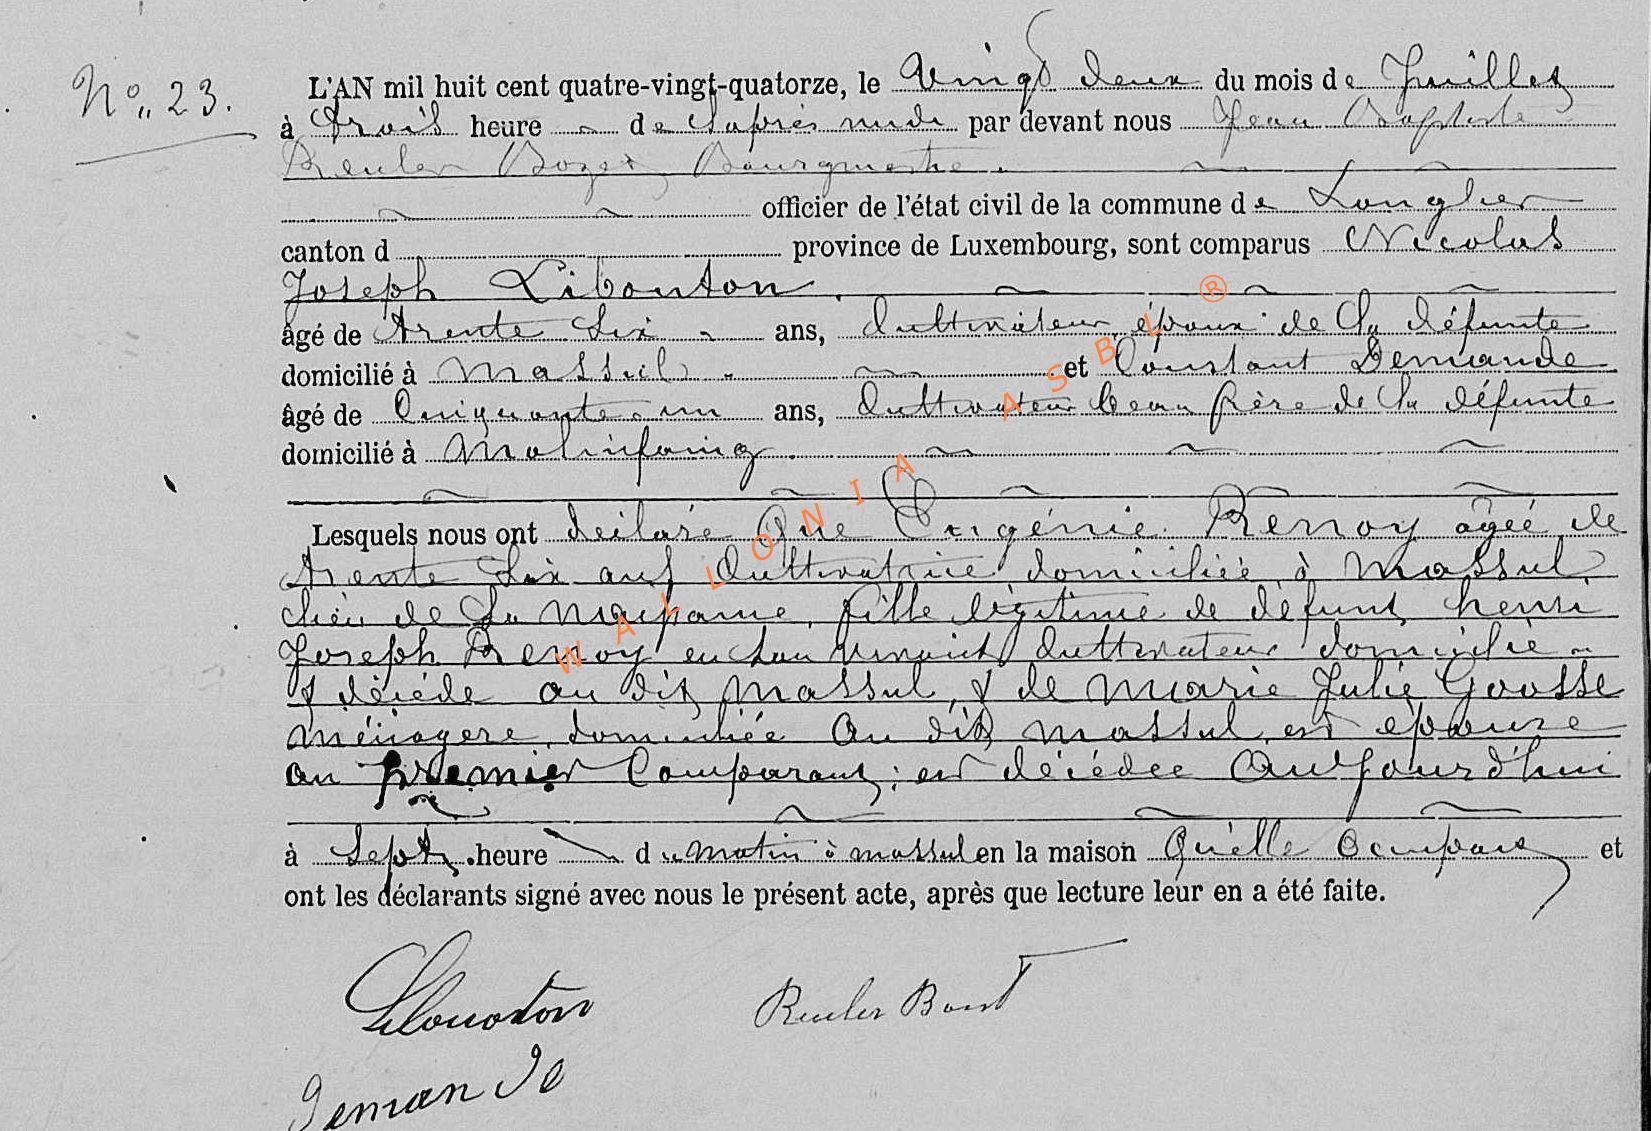 No. 23.
L'AN mil huit cent quatre-vingt-quatorze, le Vingt deux du mois de Juillet
à trois heure de l'après midi par devant nous Jean Baptiste
Reuler Bozet Bourgmestre
officier de l'état civil de la commune de Longlier
canton d province de Luxembourg, sont comparus Nicolas
Joseph Libouton
âgé de trente six ans, Cultivateur, époux de la défunte
domicilié à Massul et Constant Demande
âgé de Cinquante un ans, Cultivateur beau frère de la défunte
domicilié à Molinfaing
Lesquels nous ont déclaré Que Eugénie Renoy âgée de
trente six ans Cultivatrice domiciliée à Massul
lieu de sa naissance, fille légitime de défunt henri
Joseph Renoy en son vivant Cultivateur domicilié
& décédé au dit Massul & de Marie Julie Goosse
ménagère domiciliée au dit Massul, est épouse
au premier Comparant; est décédée Aujourd'hui
à Sept heure du matin à massul en la maison Qu'elle Occupait et
ont les déclarants signé avec nous le présent acte, après que lecture leur en a été faite.
Libouton
Reuler Bozet
Demande
WALLONIA ASBL ®